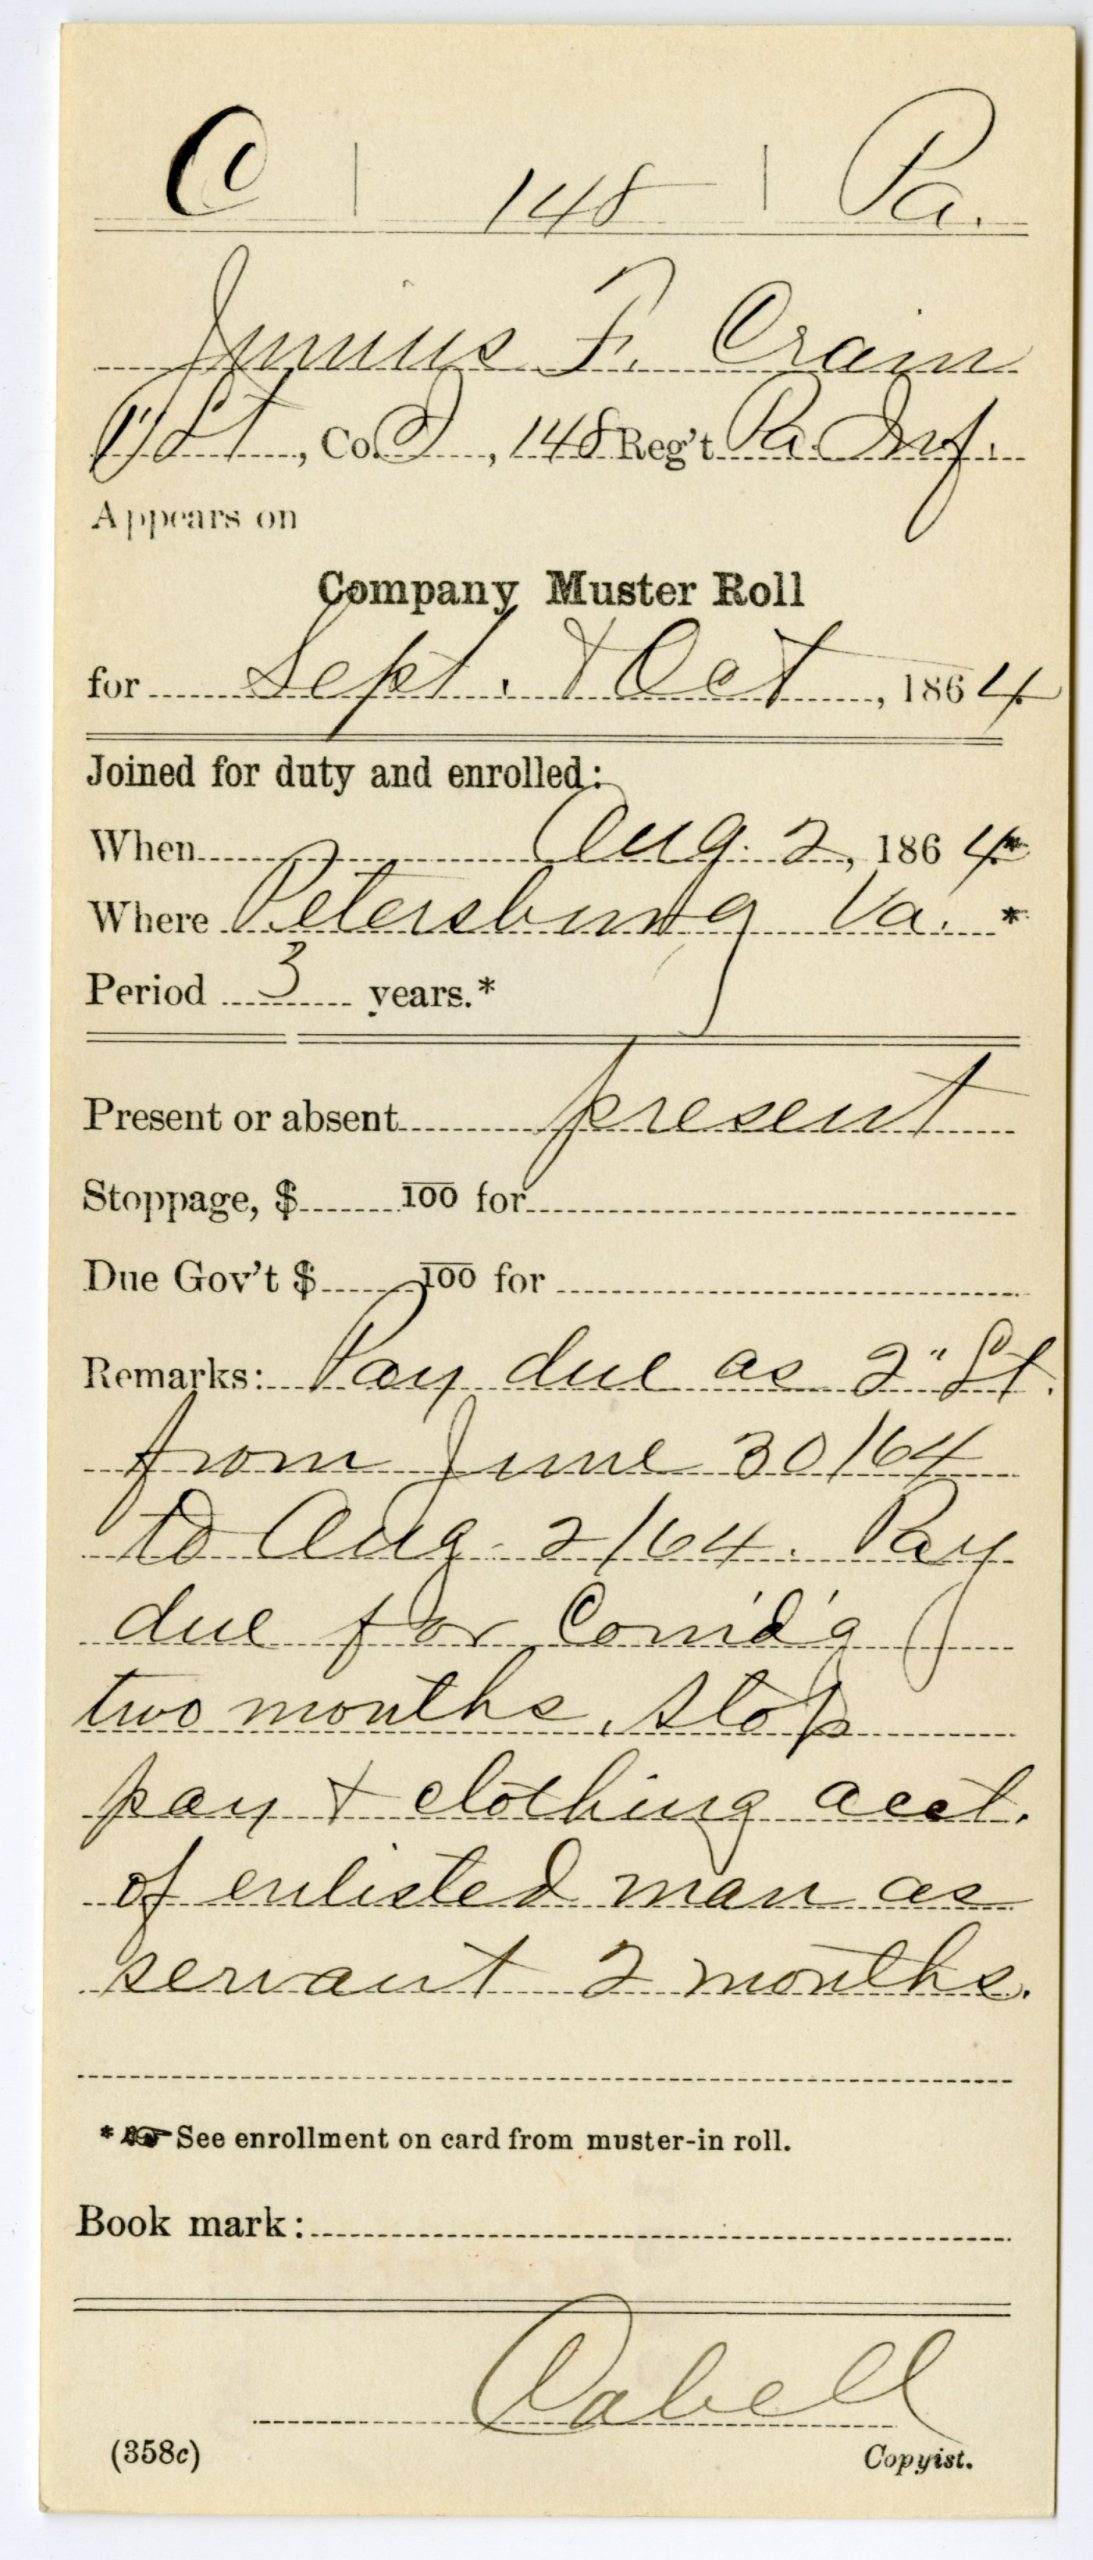 C | 148 | Pa.
Junius F. Crain
1" Lt, Co. I, 148 Reg't Pa. Inf.
Appears on
Company Muster Roll
for Sept. & Oct, 1864.
Joined for duty and enrolled:
When Aug. 2, 1864.*
Where Petersburg Va. *
Period 3 years.*
Present or absent present
Stoppage, $ 100 for
Due Gov't $ 100 for
Remarks: Pay due as 2" Lt.
from June 30/64
to Aug. 2/64. Pay
due for Com'd'g
two months. Stop
pay & clothing acct.
of enlisted man as
servant 2 months.
* ☞ See enrollment on card from muster-in roll.
Book mark:
Cabell
(358c) Copyist.